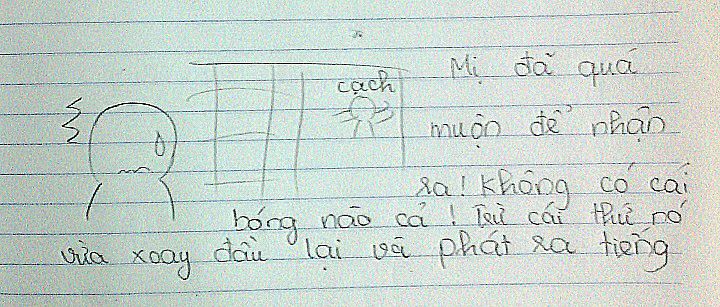 cạch
Mị đã quá
muộn để nhận
ra! Không có cái
bóng nào cả! Trừ cái thứ nó
vừa xoay đầu lại và phát ra tiếng